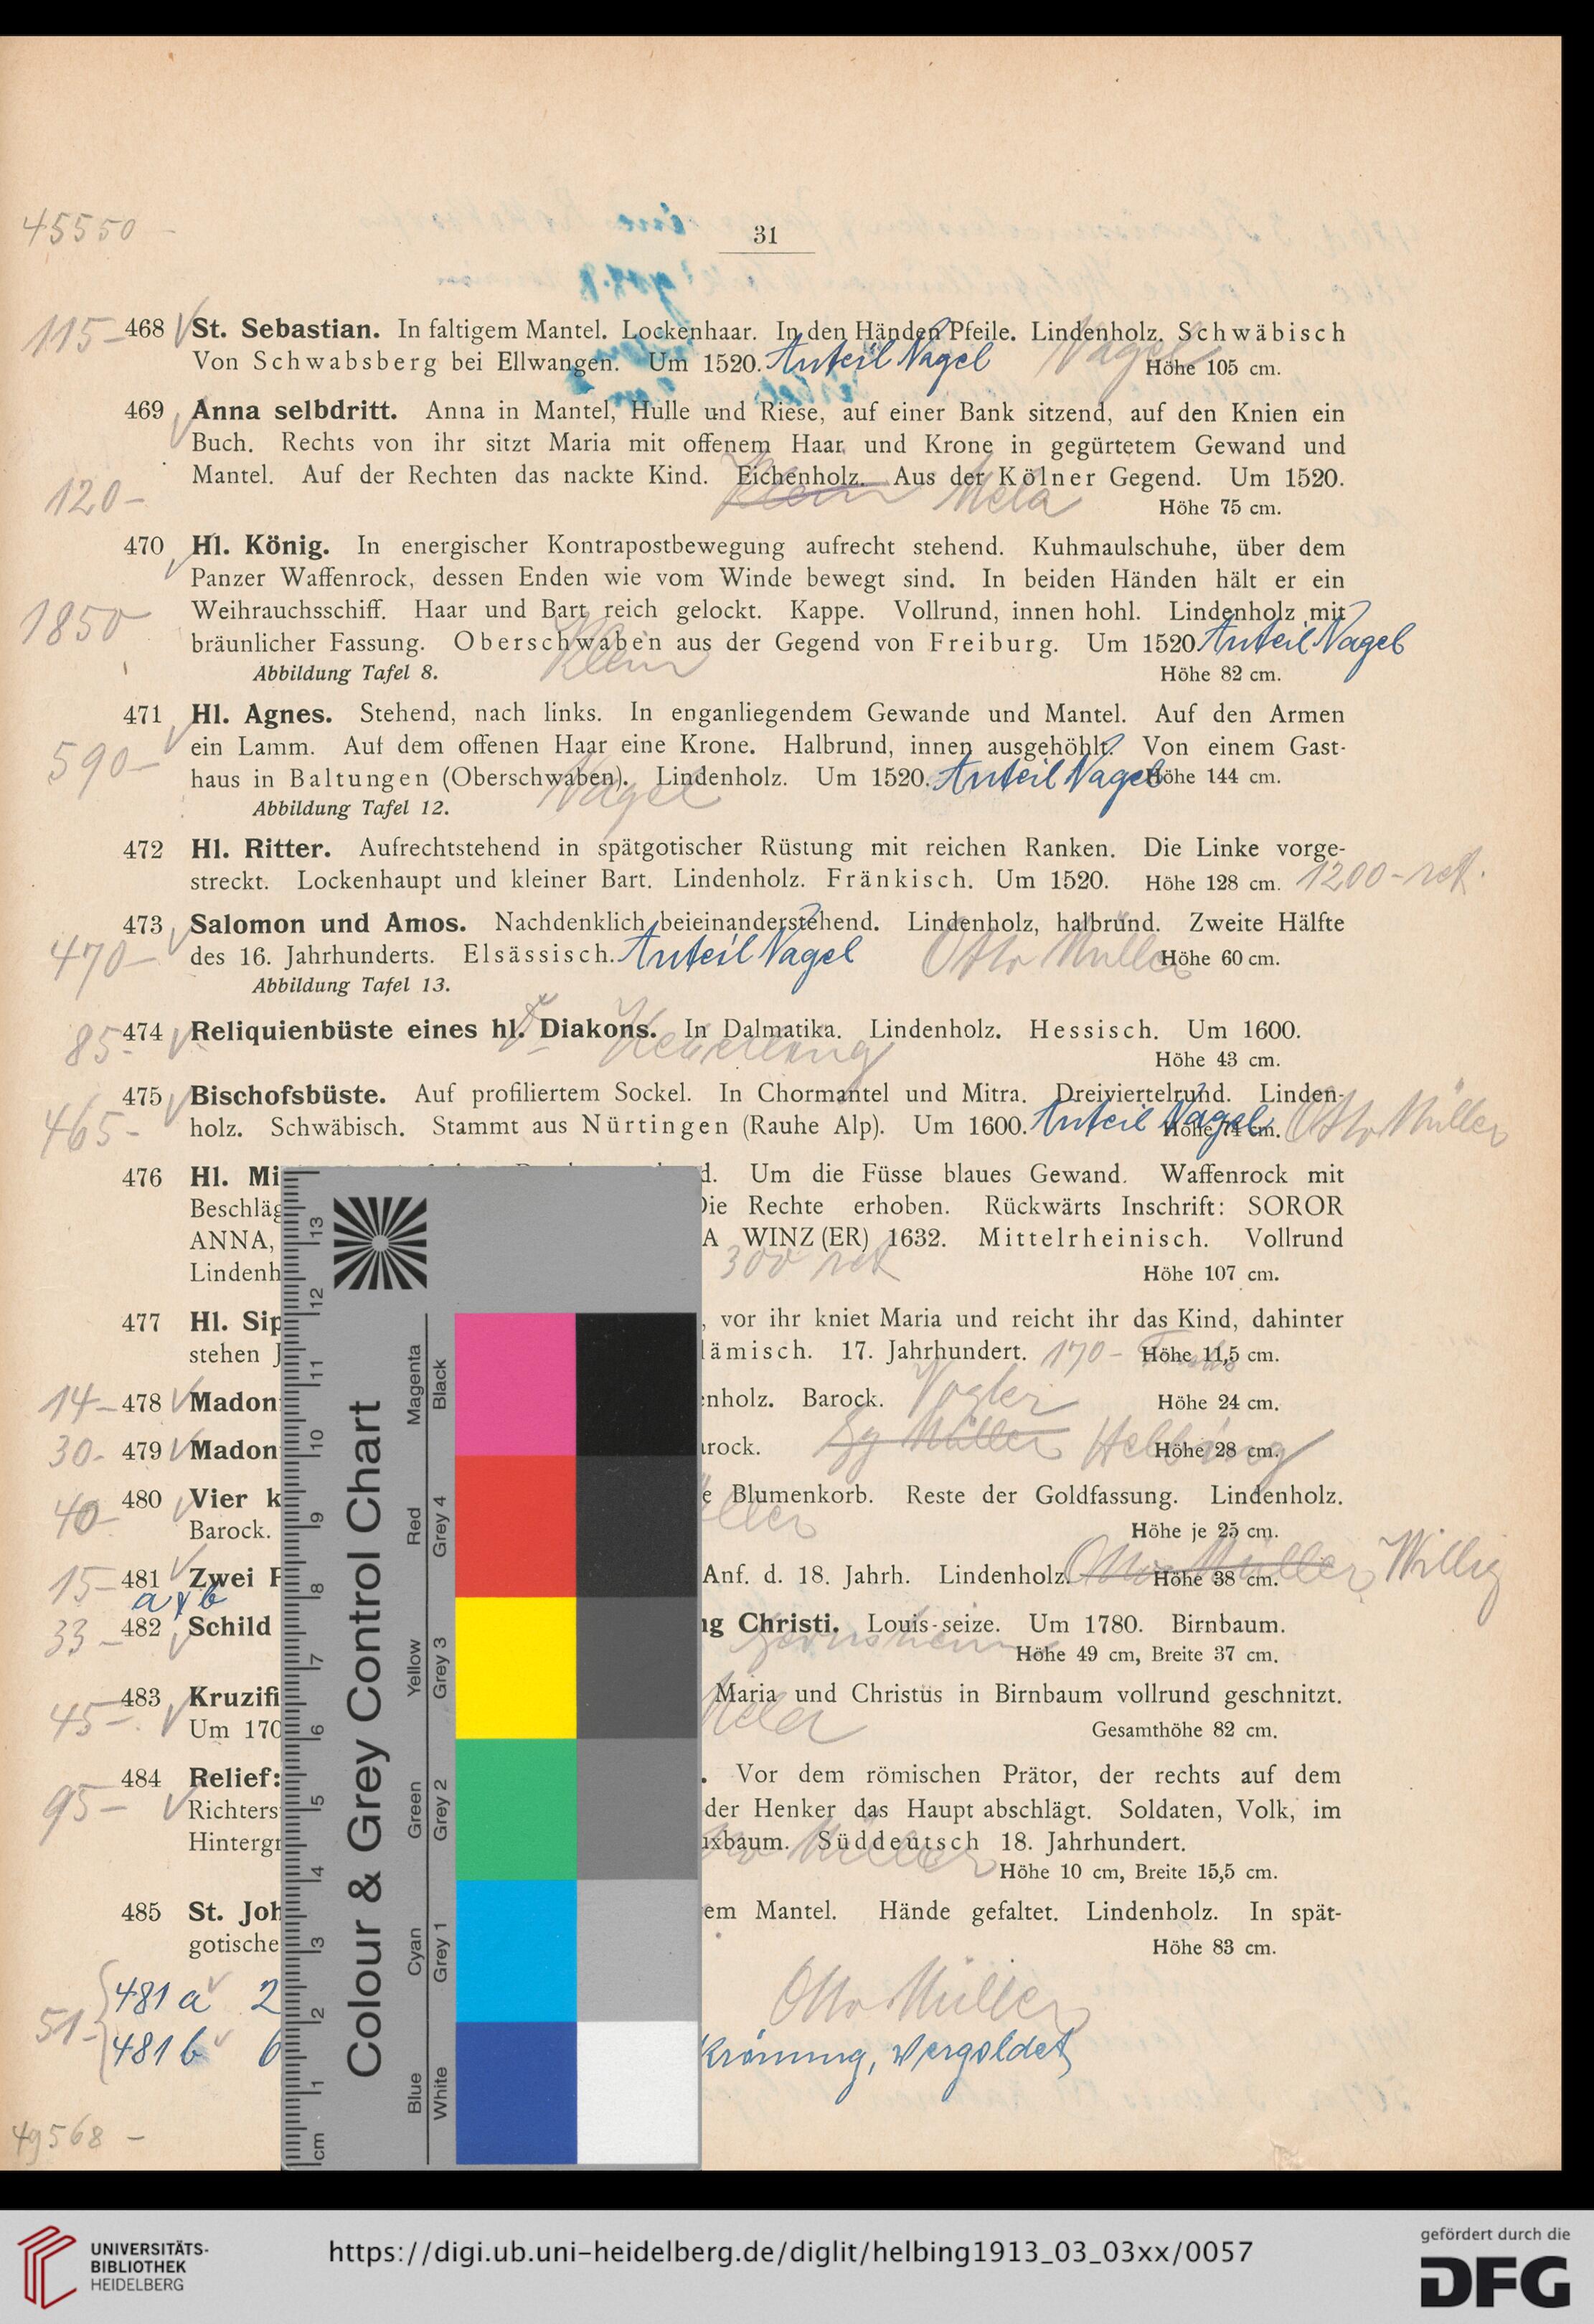 45550 -
31
115- 468 St. Sebastian. In faltigem Mantel. Lockenhaar. In den Händen Pfeile. Lindenholz. Schwäbisch
Von Schwabsberg bei Ellwangen. Um 1520. Anteil Nagel Nagel Höhe 105 cm.
469 Anna selbdritt. Anna in Mantel, Hülle und Riese, auf einer Bank sitzend, auf den Knien ein
Buch. Rechts von ihr sitzt Maria mit offenem Haar und Krone in gegürtetem Gewand und
120- Mantel. Auf der Rechten das nackte Kind. Eichenholz. Aus der Kölner Gegend. Um 1520.
Klein Mela Höhe 75 cm.
470 Hl. König. In energischer Kontrapostbewegung aufrecht stehend. Kuhmaulschuhe, über dem
Panzer Waffenrock, dessen Enden wie vom Winde bewegt sind. In beiden Händen hält er ein
1850 Weihrauchsschiff. Haar und Bart reich gelockt. Kappe. Vollrund, innen hohl. Lindenholz mit
bräunlicher Fassung. Oberschwaben aus der Gegend von Freiburg. Um 1520. Anteil Nagel
Abbildung Tafel 8. Klein Höhe 82 cm.
471 Hl. Agnes. Stehend, nach links. In enganliegendem Gewande und Mantel. Auf den Armen
590- ein Lamm. Auf dem offenen Haar eine Krone. Halbrund, innen ausgehöhlt. Von einem Gast-
haus in Baltungen (Oberschwaben). Lindenholz. Um 1520. Anteil Nagel Höhe 144 cm.
Abbildung Tafel 12. Nagel
472 Hl. Ritter. Aufrechtstehend in spätgotischer Rüstung mit reichen Ranken. Die Linke vorge-
streckt. Lockenhaupt und kleiner Bart. Lindenholz. Fränkisch. Um 1520. Höhe 128 cm. 1200- ret.
473 Salomon und Amos. Nachdenklich beieinanderstehend. Lindenholz, halbrund. Zweite Hälfte
470- des 16. Jahrhunderts. Elsässisch. Anteil Nagel Otto Müller Höhe 60 cm.
Abbildung Tafel 13.
85- 474 Reliquienbüste eines hl. Diakons. In Dalmatika. Lindenholz. Hessisch. Um 1600.
Höhe 43 cm.
475 Bischofsbüste. Auf profiliertem Sockel. In Chormantel und Mitra. Dreiviertelrund. Linden-
465- holz. Schwäbisch. Stammt aus Nürtingen (Rauhe Alp). Um 1600. Anteil Nagel Höhe 74 cm. Otto Müller
476 Hl. Mi d. Um die Füsse blaues Gewand. Waffenrock mit
Beschläg Die Rechte erhoben. Rückwärts Inschrift: SOROR
ANNA, A WINZ (ER) 1632. Mittelrheinisch. Vollrund
Lindenh 300 ret Höhe 107 cm.
477 Hl. Sip , vor ihr kniet Maria und reicht ihr das Kind, dahinter
stehen J lämisch. 17. Jahrhundert. 170- Höhe 11,5 cm.
14- 478 Madon enholz. Barock. Vogler Höhe 24 cm.
30- 479 Madon arock. Müller Helbing Höhe 28 cm.
40- 480 Vier k e Blumenkorb. Reste der Goldfassung. Lindenholz.
Barock. üller Höhe je 25 cm.
15- 481 Zwei F Anf. d. 18. Jahrh. Lindenholz. Otto Müller Höhe 38 cm. Willig
a & b
33- 482 Schild ng Christi. Louis-seize. Um 1780. Birnbaum.
Höhe 49 cm, Breite 37 cm.
483 Kruzifi Maria und Christus in Birnbaum vollrund geschnitzt.
45- Um 170 Mela Gesamthöhe 82 cm.
484 Relief: . Vor dem römischen Prätor, der rechts auf dem
95- Richters der Henker das Haupt abschlägt. Soldaten, Volk, im
Hintergr uxbaum. Süddeutsch 18. Jahrhundert.
Müller Höhe 10 cm, Breite 15,5 cm.
485 St. Joh em Mantel. Hände gefaltet. Lindenholz. In spät-
gotische Höhe 83 cm.
481 a 2 Otto Müller
51-
481 b 6 Krönung, vergoldet
49568 -
Colour & Grey Control Chart
Magenta Black
Red Grey 4
Yellow Grey 3
Green Grey 2
Cyan Grey 1
Blue White
cm 1 2 3 4 5 6 7 8 9 10 11 12 13
UNIVERSITÄTS-
BIBLIOTHEK
HEIDELBERG
https://digi.ub.uni-heidelberg.de/diglit/helbing1913_03_03xx/0057
gefördert durch die
DFG